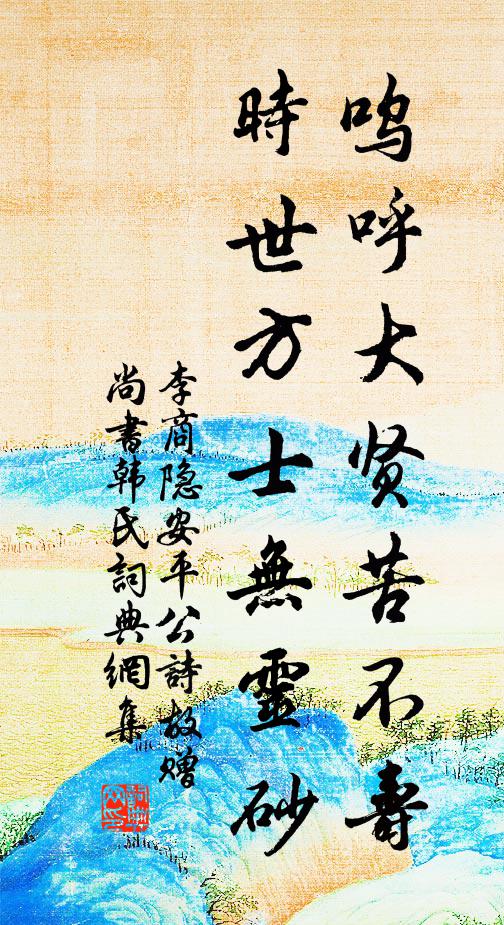 嗚呼大贤苦不壽
時世方士無靈砂
李商隐安平公詩故贈
尚書韩氏詞典網集